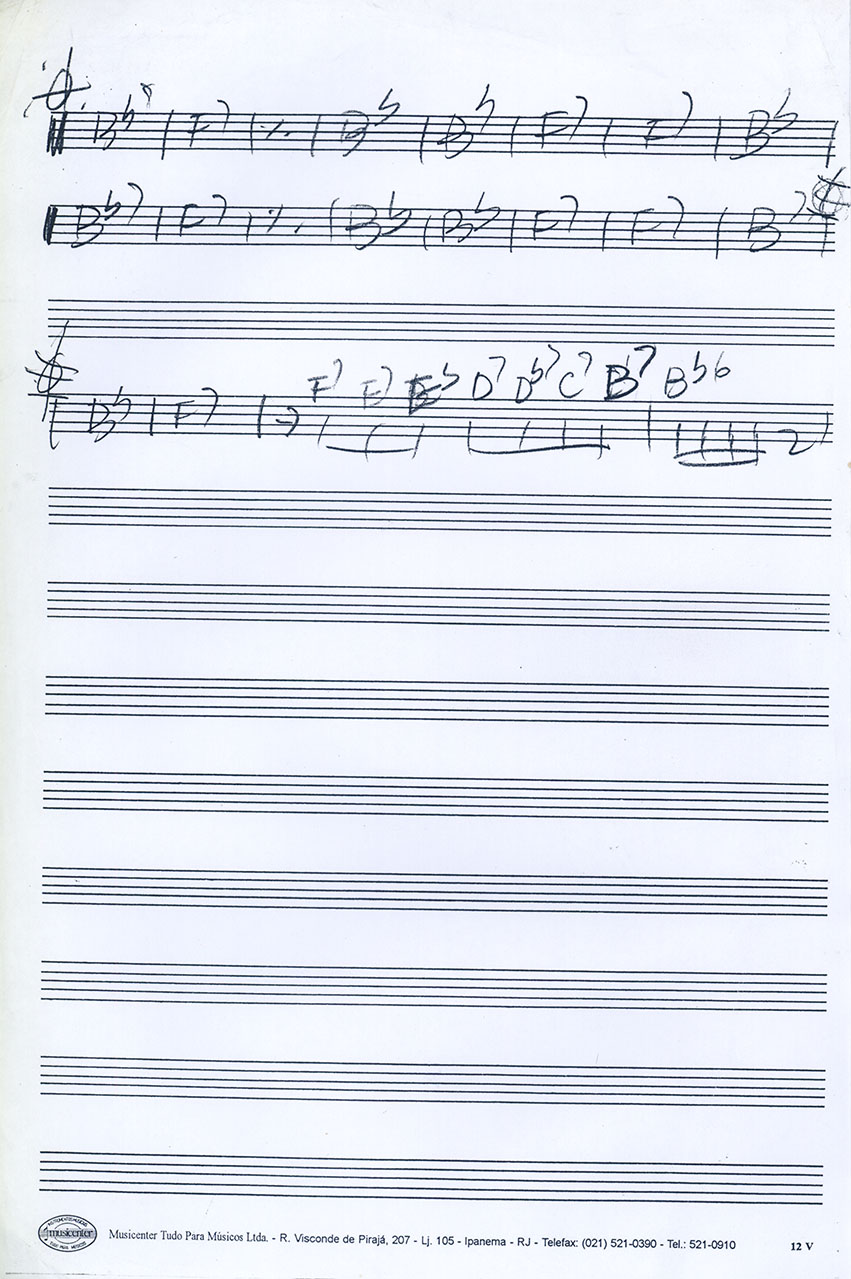 B♭ | F7 | ٪ | B♭ | B♭ | F7 | F7 | B♭ |
B♭7 | F7 | ٪ | B♭ | B♭ | F7 | F7 | B7
F7 E7 E♭ D7 D♭7 C7 B7 B♭6
B♭ | F7 |
musicenter
Musicenter Tudo Para Músicos Ltda. - R. Visconde de Pirajá, 207 - Lj. 105 - Ipanema - RJ - Telefax: (021) 521-0390 - Tel.: 521-0910
12 V